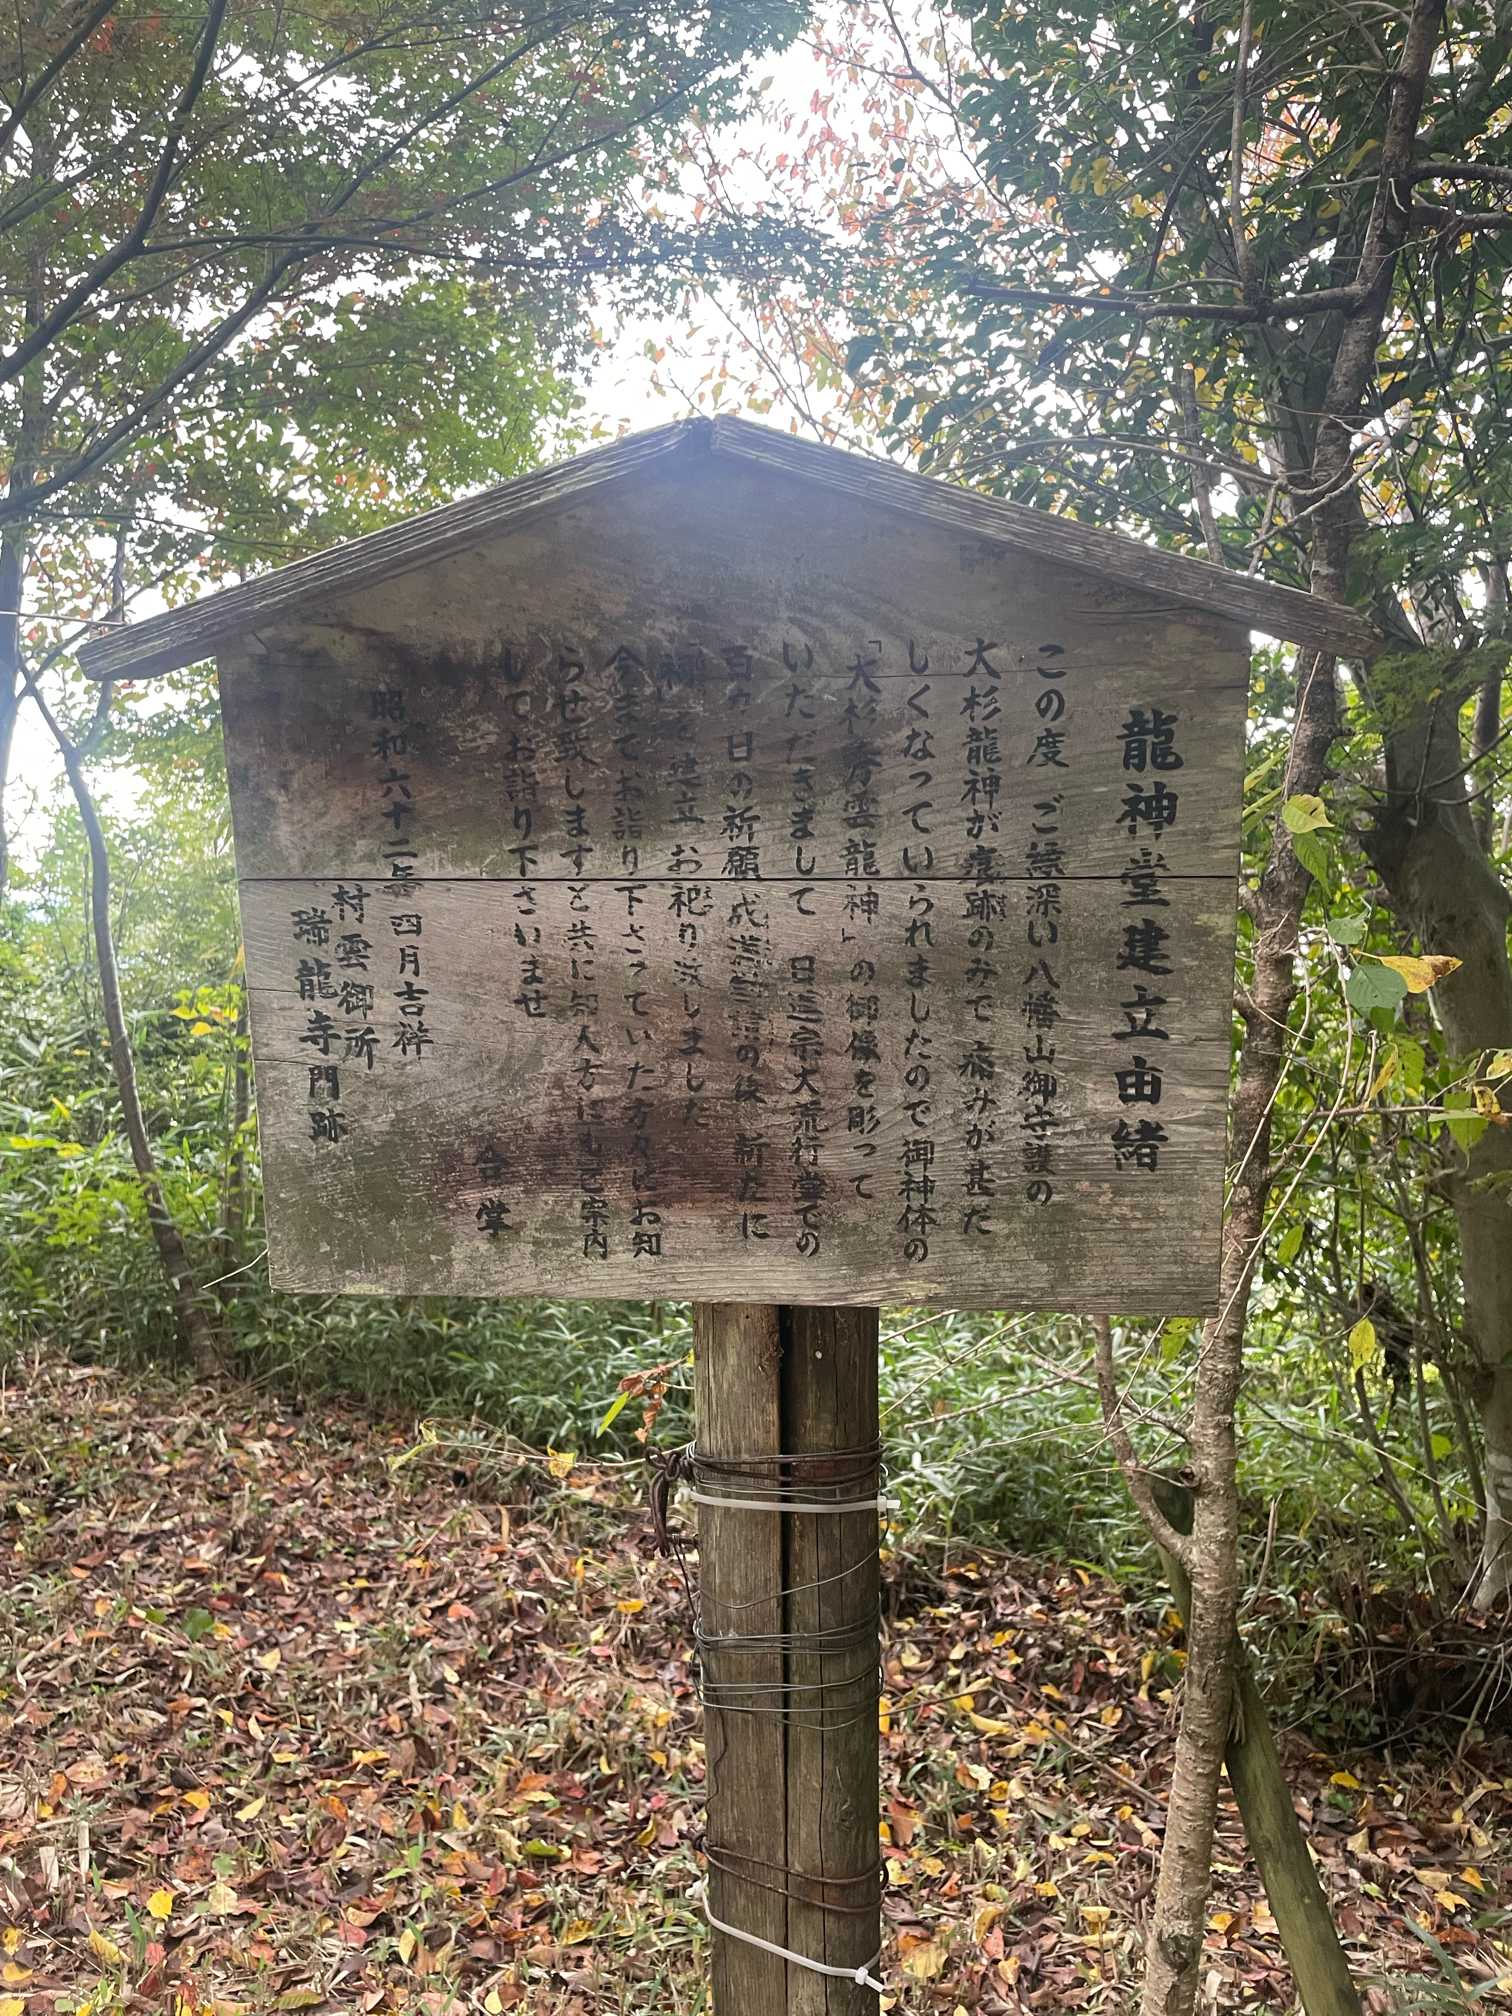 龍神堂建立由緒
この度 ご縁深い八幡山御守護の
大杉龍神が痕跡のみで痛みが甚だ
しくなっていられましたので御神体の
「大杉秀雲龍神」の御像を彫って
いただきまして 日蓮宗大荒行堂での
百ケ日の祈願成満 の後 新たに
「祠」を建立 お祀り致しました
今までお詣り下さっていた方々にお知
らせ致しますと共に知人方にもご案内
してお詣り下さいませ
合掌
昭和六十二年 四月吉祥
村雲御所
瑞龍寺門跡